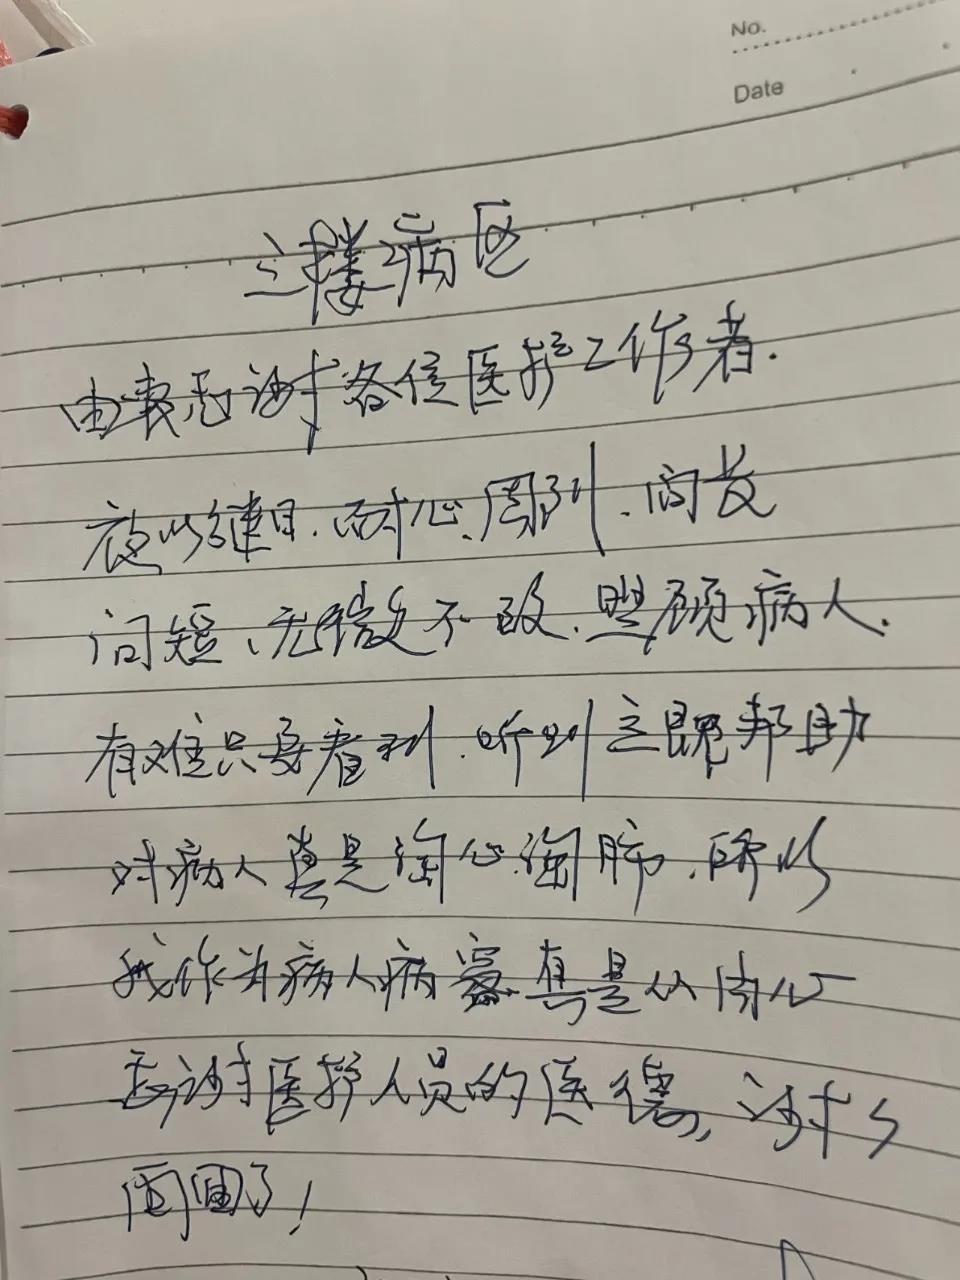 No.
Date
三楼病区
由衷感谢各位医护工作者.
夜以继日.耐心.周到.问长
问短、无微不致.照顾病人.
有难只要看到.听到立即帮助
对病人真是掏心掏肺.所以
我作为病人病 真是从内心
感谢医护人员的医德,谢谢